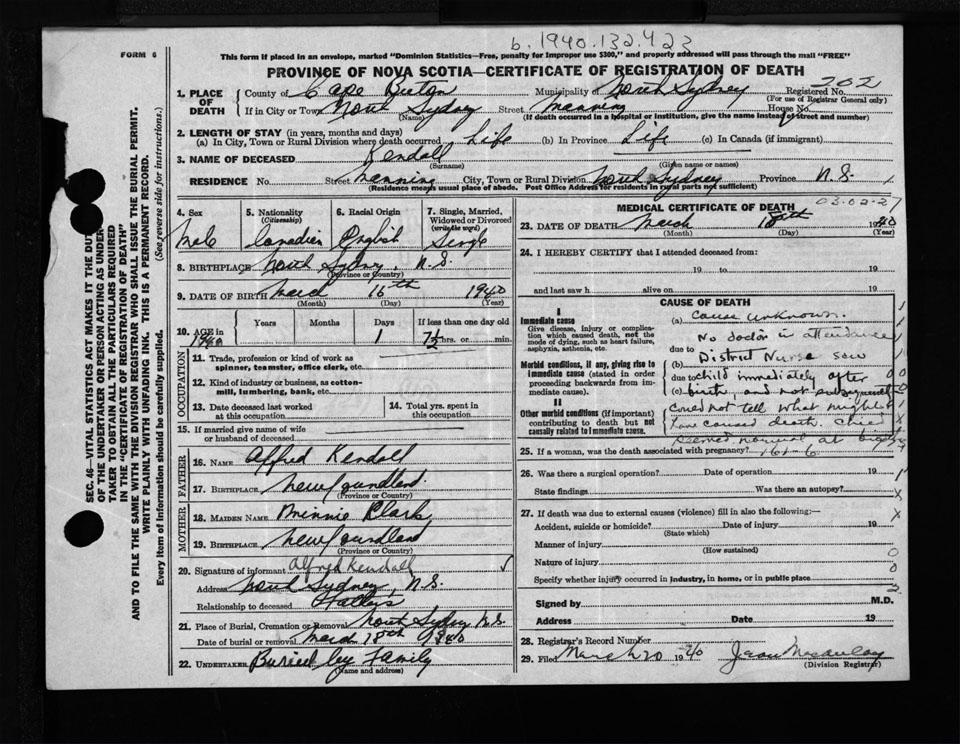 b. 1940.132.423
FORM 6
This form if placed in an envelope, marked "Dominion Statistics—Free, penalty for improper use $300," and properly addressed will pass through the mail "FREE"
PROVINCE OF NOVA SCOTIA—CERTIFICATE OF REGISTRATION OF DEATH
1. PLACE OF DEATH
County of Cape Breton Municipality of North Sydney Registered No. 202
(For use of Registrar General only)
If in City or Town North Sydney Street Manning House No.
(Name) (If death occurred in a hospital or institution, give the name instead of street and number)
2. LENGTH OF STAY (in years, months and days)
(a) In City, Town or Rural Division where death occurred Life (b) In Province Life (c) In Canada (if immigrant)
3. NAME OF DECEASED Kendall
(Surname) (Given name or names)
RESIDENCE No. Street Manning City, Town or Rural Division North Sydney Province N.S.
(Residence means usual place of abode. Post Office Address for residents in rural parts not sufficient)
SEC. 46—VITAL STATISTICS ACT MAKES IT THE DUTY
OF THE UNDERTAKER OR PERSON ACTING AS UNDERTAKER
TO OBTAIN ALL THE PARTICULARS REQUIRED
IN THE "CERTIFICATE OF REGISTRATION OF DEATH"
AND TO FILE THE SAME WITH THE DIVISION REGISTRAR WHO SHALL ISSUE THE BURIAL PERMIT.
WRITE PLAINLY WITH UNFADING INK. THIS IS A PERMANENT RECORD.
Every item of information should be carefully supplied. (See reverse side for instructions.)
4. Sex
Male
5. Nationality
(Citizenship)
Canadian
6. Racial Origin
English
7. Single, Married, Widowed or Divorced
(write the word)
Single
8. BIRTHPLACE North Sydney, N.S.
(Province or Country)
9. DATE OF BIRTH March 16th 1940
(Month) (Day) (Year)
10. AGE in
Years Months Days If less than one day old
1 7½ hrs. or min.
OCCUPATION
11. Trade, profession or kind of work as
spinner, teamster, office clerk, etc.
12. Kind of industry or business, as cotton-
mill, lumbering, bank, etc.
13. Date deceased last worked
at this occupation
14. Total yrs. spent in
this occupation
15. If married give name of wife
or husband of deceased
FATHER
16. NAME Alfred Kendall
17. BIRTHPLACE Newfoundland
(Province or Country)
MOTHER
18. MAIDEN NAME Minnie Clark
19. BIRTHPLACE Newfoundland
(Province or Country)
20. Signature of informant Alfred Kendall
Address North Sydney, N.S.
Relationship to deceased Father
21. Place of Burial, Cremation or Removal North Sydney N.S.
Date of burial or removal March 18th 1940
22. UNDERTAKER Buried by Family
(Name and address)
MEDICAL CERTIFICATE OF DEATH
03-02-27
23. DATE OF DEATH March 18th 1940
(Month) (Day) (Year)
24. I HEREBY CERTIFY that I attended deceased from:
19 to 19
and last saw h alive on 19
CAUSE OF DEATH
I
Immediate cause
Give disease, injury or complication which caused death, not the mode of dying, such as heart failure, asphyxia, asthenia, etc.
(a) Cause unknown.
No doctor in attendance
due to
District Nurse saw
Morbid conditions, if any, giving rise to immediate cause (stated in order proceeding backwards from immediate cause).
(b)
due to child immediately after
(c) birth, and not subsequently
II
Other morbid conditions (if important) contributing to death but not causally related to immediate cause.
Could not tell what might
have caused death. Child
seemed normal at birth
25. If a woman, was the death associated with pregnancy? 161-6
26. Was there a surgical operation? Date of operation 19
State findings Was there an autopsy?
27. If death was due to external causes (violence) fill in also the following:—
Accident, suicide or homicide? Date of injury 19
(State which)
Manner of injury
(How sustained)
Nature of injury
Specify whether injury occurred in industry, in home, or in public place
Signed by M.D.
Address Date 19
28. Registrar's Record Number
29. Filed March 20 1940 Jean Macaulay
(Division Registrar)